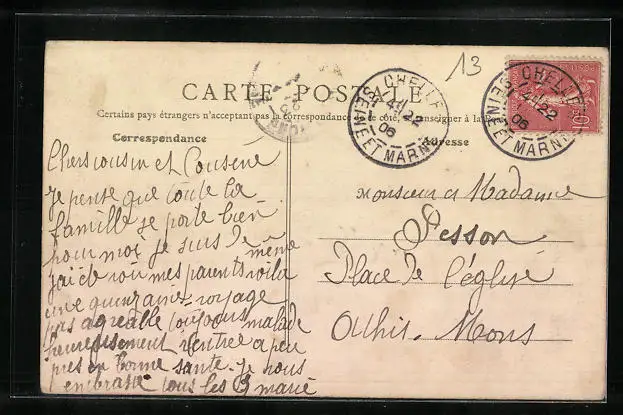 13
CARTE POSTALE
Certains pays étrangers n'acceptant pas la correspondance de ce côté, se renseigner à la
Correspondance
Adresse
CHELLES
22
06
SEINE ET MARNE
CHELLES
22
06
SEINE ET MARNE
10
Chers cousin et Cousine
je pense que toute la
famille se porte bien
pour moi je suis de même
j'ai été voir mes parents voila
une quinzaine voyage
pas agreable toujours malade
heureusement rentrée a peu
pres en bonne sante. je vous
embrasse tous les 3 marie
Monsieur et Madame
Pesson
Place de l'église
Athis. Mons